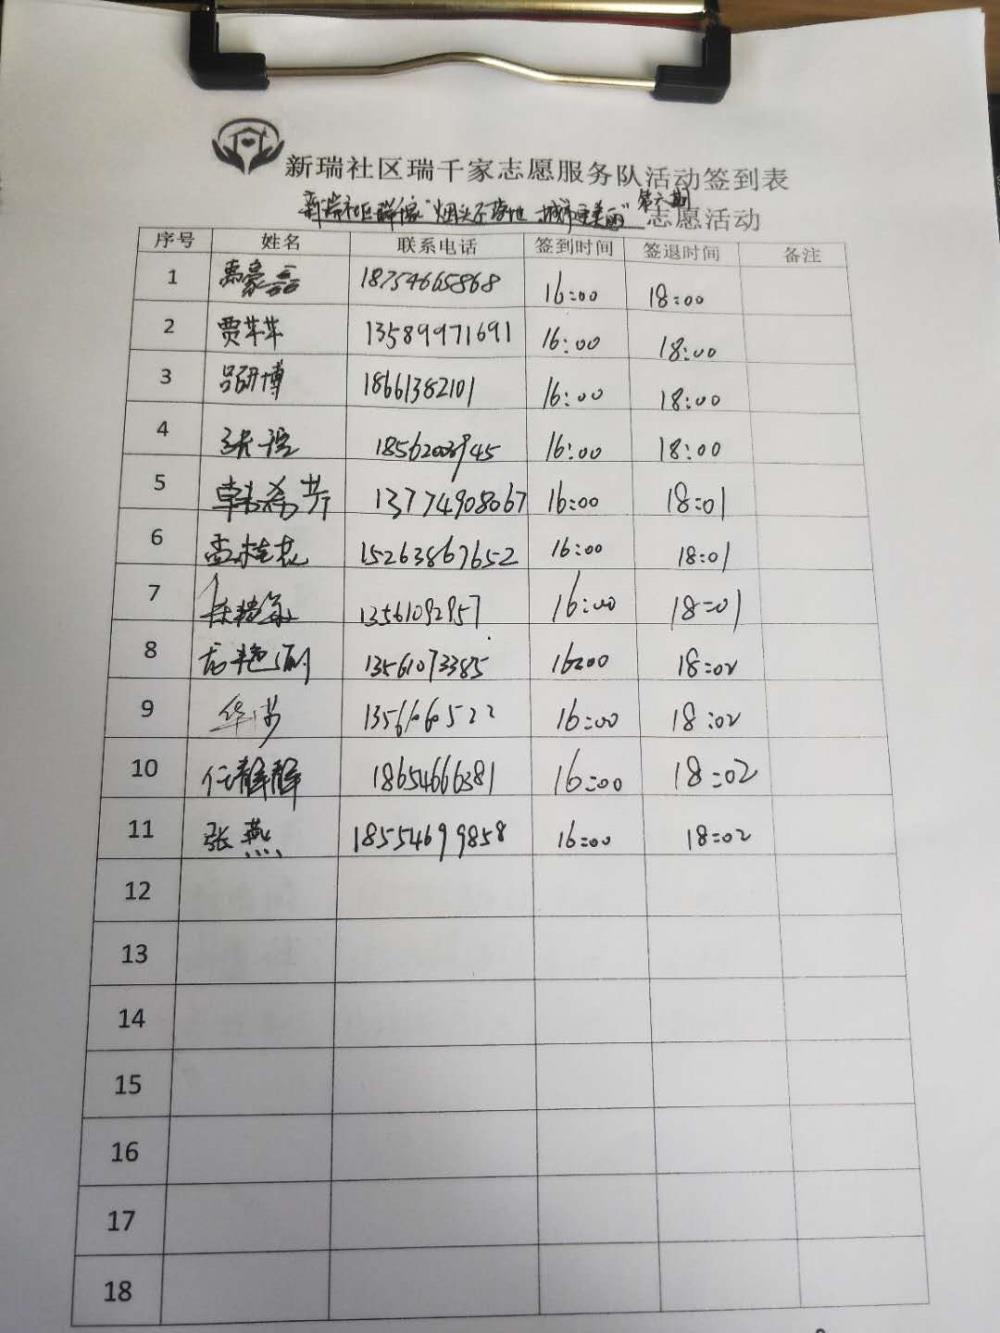 新瑞社区瑞千家志愿服务队活动签到表
新瑞社区 "烟头不落地 城市更美丽" 第六期 志愿活动
序号 姓名 联系电话 签到时间 签退时间 备注
1 18754665868 16:00 18:00
2 贾苹苹 13589971691 16:00 18:00
3 吕研博 18661382101 16:00 18:00
4 18562003945 16:00 18:00
5 韩希芹 13774908067 16:00 18:01
6 孟桂花 15263867652 16:00 18:01
7 13561092957 16:00 18:01
8 13561073385 16:00 18:02
9 16:00 18:02
10 任静静 18654666381 16:00 18:02
11 张燕 18554699858 16:00 18:02
12
13
14
15
16
17
18